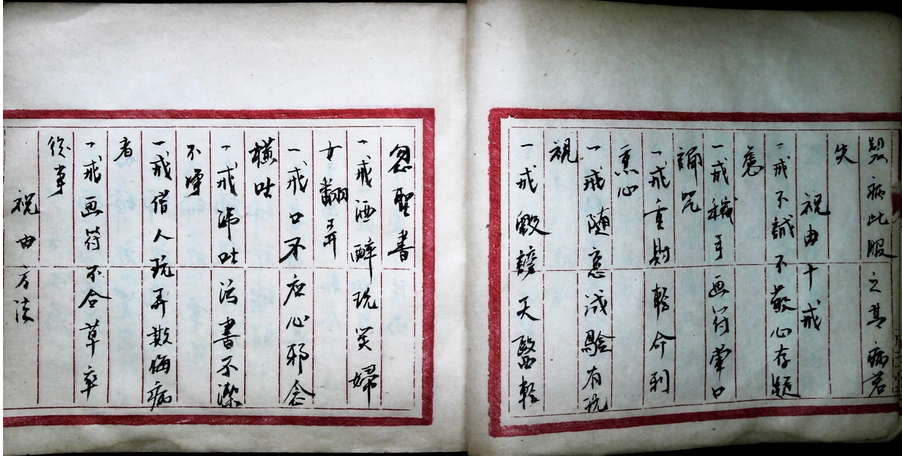 器病此服之其病若
失
祝由十戒
一戒不誠不敬心存疑
惑
一戒穢手画符葷口
誦咒
一戒重財輕命利
薰心
一戒随意試驗有玩
視
一戒毀謗天醫輕
忽聖書
一戒酒醉玩笑婦
女翻弄
一戒口不应心邪念
橫吐
一戒涕吐污書不潔
不淨
一戒借人玩弄欺侮病
者
一戒画符不合草率
從事
祝由方法